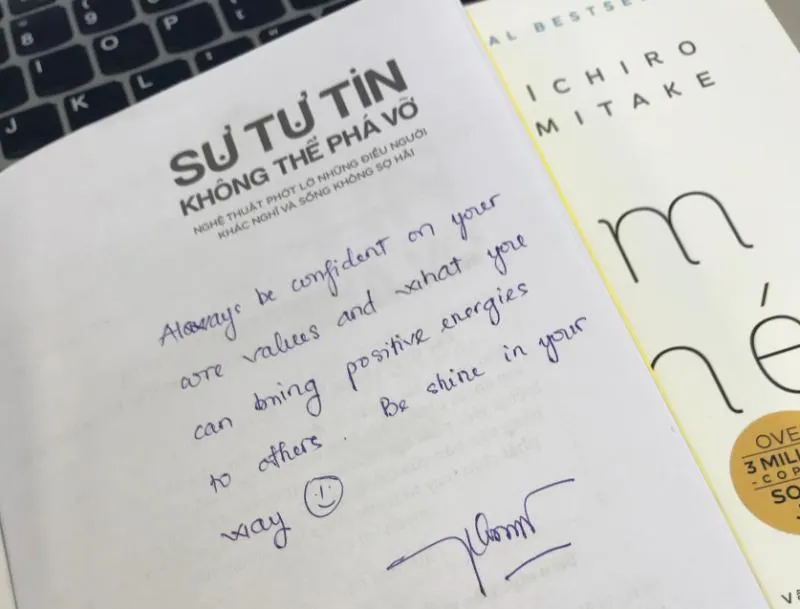 8
9
I
O
P
J
K
L
SỰ TỰ TIN
KHÔNG THỂ PHÁ VỠ
NGHỆ THUẬT PHỚT LỜ NHỮNG ĐIỀU NGƯỜI
KHÁC NGHĨ VÀ SỐNG KHÔNG SỢ HÃI
Always be confident on your
core values and what you
can bring positive energies
to others. Be shine in your
way
AL BESTSE
ICHIRO
MITAKE
m
né
OVE
3 MILL
-COP
SO